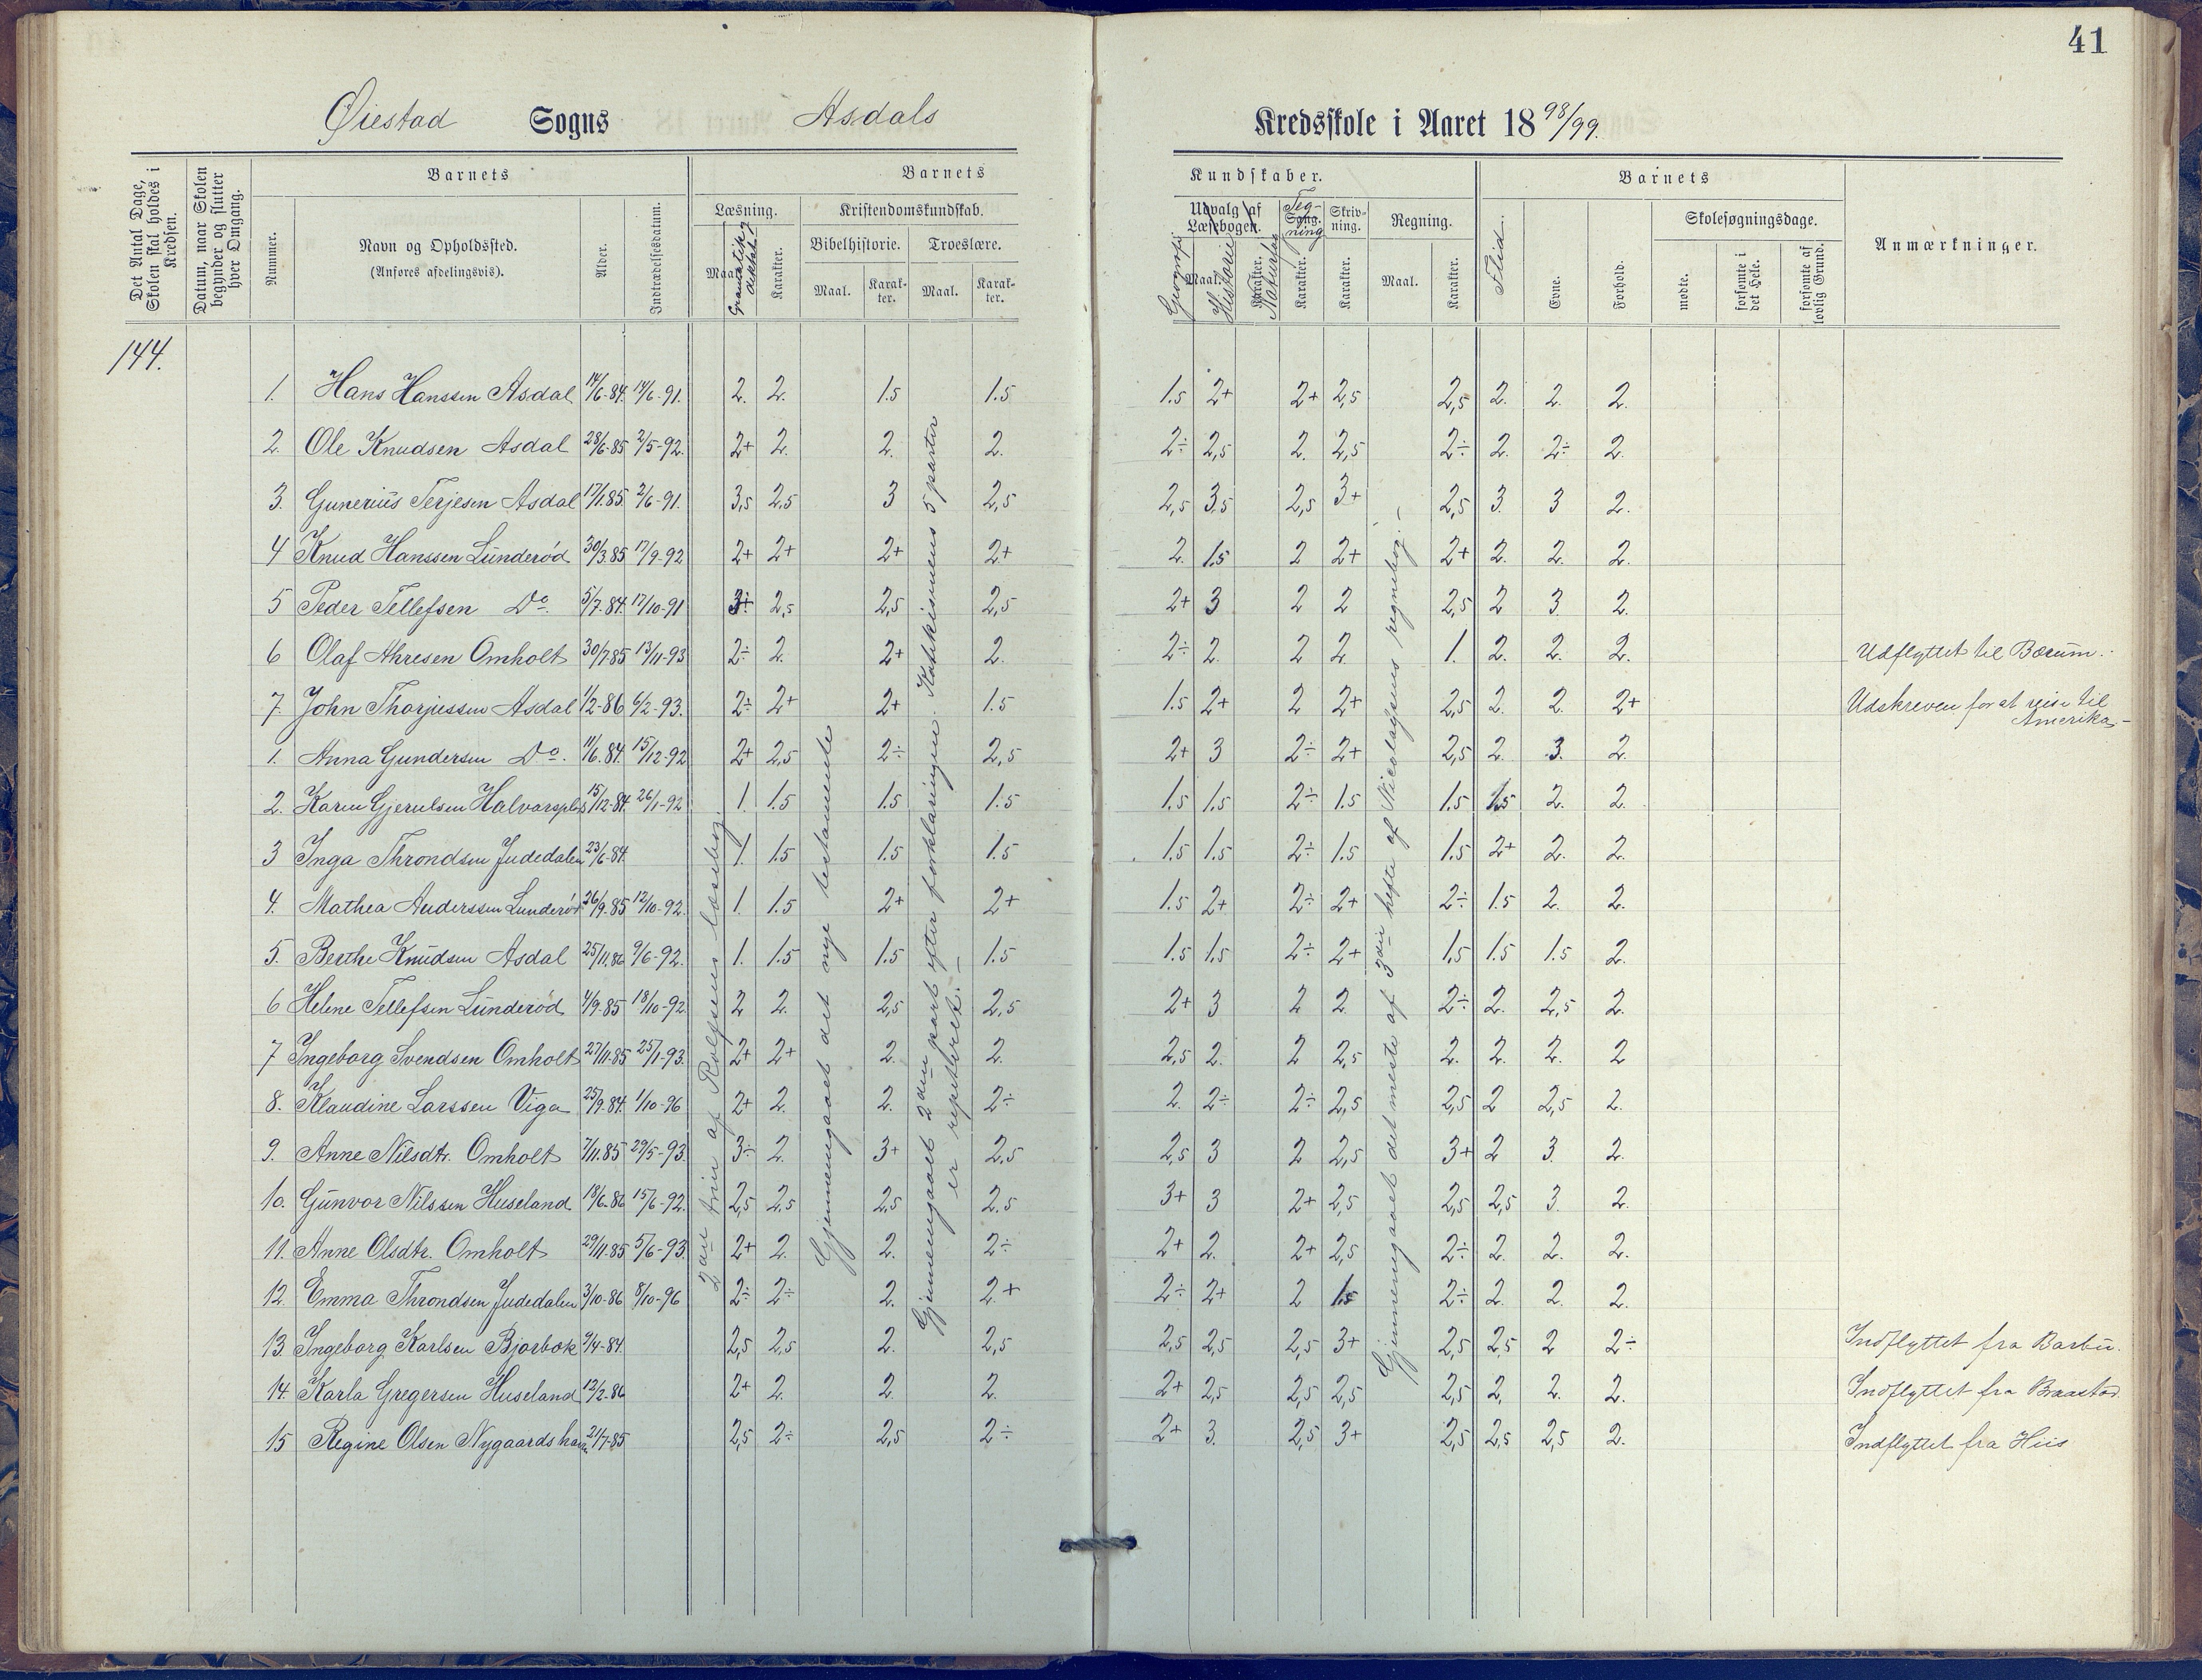 41
Øiestad Sogns Asdals Kredsskole i Aaret 1898/99.
Det Antal Dage, Skolen skal holdes i Kredsen.
Datum, naar Skolen begynder og slutter hver Omgang.
Barnets
Nummer.
Navn og Opholdssted.
(Anføres afdelingsvis).
Alder.
Indtrædelsesdatum.
Barnets
Læsning.
Maal.
Gramatik og diktat
Karakter.
Kristendomskundskab.
Bibelhistorie.
Maal.
Karakter.
Troeslære.
Maal.
Karakter.
Kundskaber.
Udvalg af Læsebogen.
Geografi
Maal.
Historie
Karakter.
Naturfag
Sang.
Tegning
Karakter.
Skrivning.
Karakter.
Regning.
Maal.
Karakter.
Barnets
Flid.
Evne.
Forhold.
Skolesøgningsdage.
mødte.
forsømte i det Hele.
forsømte af lovlig Grund.
Anmærkninger.
144.
1. Hans Hanssen Asdal 14/6-84. 14/6-91. 2. 2. 1.5 1.5 1.5 2+ 2+ 2,5 2,5 2. 2. 2.
2. Ole Knudsen Asdal 28/6-85 2/5-92. 2+ 2. 2. 2. 2÷ 2,5 2. 2,5 2÷ 2. 2÷ 2.
3. Gunerius Terjesen Asdal 17/1.85. 2/6-91. 3,5 2,5 3 2,5 2,5 3,5 2,5 3+ 2,5 3. 3 2.
4 Knud Hanssen Lunderød 30/3.85 17/9-92 2+ 2+ 2+ 2+ 2. 1.5 2 2+ 2+ 2. 2. 2.
5 Peder Tellefsen Do. 5/7.84. 17/10-91 3+ 2,5 2,5 2,5 2+ 3 2 2 2,5 2 3. 2.
6 Olaf Ahresen Omholt 30/7.85 13/11-93 2÷ 2. 2+ 2. 2÷ 2. 2 2. 1. 2. 2. 2. Udflyttet til Bærum.
7. John Thorjussen Asdal 1/2-86 6/2-93. 2÷ 2+ 2+ 1.5 1.5 2+ 2 2+ 2,5 2. 2. 2+ Udskreven for at reise til
Amerika
1. Anna Gundersen Do. 11/6.84. 15/12-92 2+ 2,5 2÷ 2,5 2+ 3 2÷ 2+ 2,5 2. 3. 2.
2. Karen Gjerulsen Halvarsplds 15/12-84. 26/1-92 1. 1.5 1.5 1.5 1.5 1.5 2÷ 1.5 1.5 1.5 2. 2.
3 Inga Throndsen Judedalen 23/6-84. 1. 1.5 1.5 1.5 1.5 1.5 2÷ 1.5 1.5 2+ 2. 2.
4. Mathea Anderssen Lunderød 26/9.85 12/10-92. 1. 1.5 2+ 2+ 1.5 2+ 2÷ 2+ 2÷ 1.5 2. 2.
5. Berthe Knudsen Asdal 25/11.86 9/6-92. 1. 1.5 1.5 1.5 1.5 1.5 2÷ 2+ 1.5 1.5 1.5 2.
6 Helene Tellefsen Lunderød 4/9.85 18/10-92. 2 2. 2,5 2,5 2+ 3 2 2 2÷ 2. 2,5 2.
7 Ingeborg Svendsen Omholt 27/11.85 25/1-93. 2+ 2+ 2. 2. 2,5 2. 2 2,5 2. 2. 2. 2
8. Klaudine Larssen Viga 25/9.84. 1/10-96 2+ 2. 2. 2÷ 2. 2÷ 2÷ 2,5 2,5 2 2,5 2.
9. Anne Nilsdtr. Omholt 7/11.85 29/5-93. 3÷ 2. 3+ 2,5 2,5 3 2 2,5 3+ 2 3. 2.
10. Gunvor Nilssen Huseland 18/6.86 15/6-92. 2,5 2,5 2,5 2,5 3+ 3 2+ 2,5 2,5 2,5 3. 2.
11. Anne Olsdtr. Omholt 29/11.85 5/6-93. 2+ 2. 2. 2÷ 2+ 2. 2+ 2,5 2÷ 2. 2. 2.
12. Emma Throndsen Judedalen 3/10-86 8/10-96 2÷ 2÷ 2. 2.+ 2÷ 2+ 2 1.5 2÷ 2. 2. 2.
13. Ingeborg Karlsen Bjorbæk 9/4-84. 2,5 2,5 2. 2,5 2,5 2,5 2,5 3+ 2,5 2,5 2 2÷ Indflyttet fra Barbu.
14. Karla Gregersen Huseland 12/2-86 2+ 2. 2. 2. 2+ 2,5 2,5 2,5 2,5 2, 2. 2. Indflyttet fra Braastad
15 Regine Olsen Nygaardshavn 21/7-85 2,5 2÷ 2,5 2÷ 2+ 3. 2,5 3+ 2,5 2,5 2,5 2. Indflyttet fra Hiis
2det trin af Rolfsens læsebog.
Gjennemgaaet det nye testamente
Gjennemgaaet 2den part efter forklaringen. Katekismens 5 parter
er repeteret. –
Gjennemgaaet det meste af 3die hefte af Nicolaysens regnebog. –